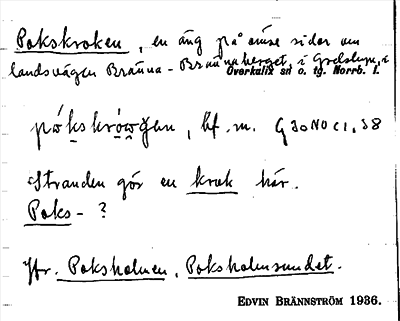 Pokskroken, en äng på ömse sidor om
landsvägen Bränna - Brännaberget, i
Överkalix sn o. tg. Norrb. l.
bf. m.
Stranden gör en krok här.
Poks- ?
Jfr. Poksholmen, Poksholmsundet.
EDVIN BRÄNNSTRÖM 1936.